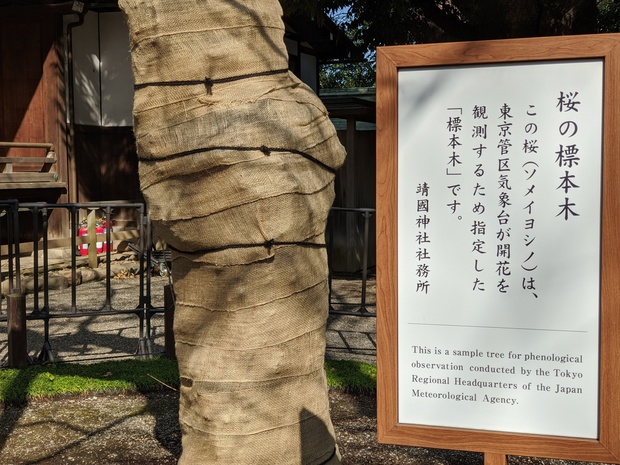 桜の標本木
この桜（ソメイヨシノ）は、
東京管区気象台が開花を
観測するため指定した
「標本木」です。
靖國神社社務所
This is a sample tree for phenological
observation conducted by the Tokyo
Regional Headquarters of the Japan
Meteorological Agency.